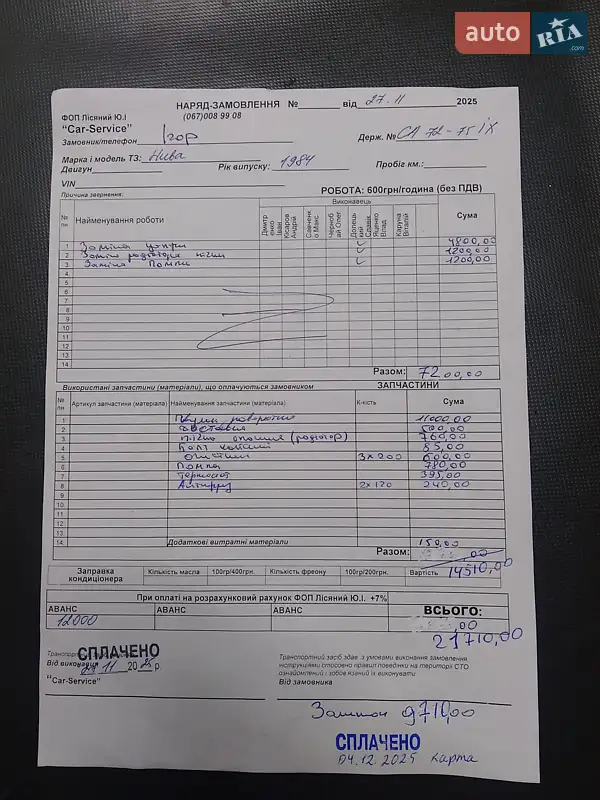 auto RIA .com
НАРЯД-ЗАМОВЛЕННЯ № від 27.11 2025
ФОП Лісяний Ю.І (067)008 99 08
"Car-Service"
Замовник/телефон Ігор Держ. № СА 72-75 ІХ
Марка і модель ТЗ: Нива Рік випуску: 1984 Пробіг км.:
Двигун
VIN
Причина звернення: РОБОТА: 600грн/година (без ПДВ)
№ пн Найменування роботи Виконавець Сума
Дмитренко Іван Юсаров Андрій Савченко Макс Чернобай Олег Донецький Славік Яценко Влад Каруна Віталій
1 Заміна 4800,00
2 Заміна радіатора пічки 1200,00
3 Заміна Помпи 1200,00
4
5
6
7
8
9
10
11
12
13
14
Разом: 7200,00
Використані запчастини (матеріали), що оплачуються замовником ЗАПЧАСТИНИ
№ пн Артикул запчастини (матеріала) Найменування запчастини (матеріала) К-кість Сума
1 Кулак поворотний 11000,00
2 500,00
3 пічка (радіатор) 760,00
4 Болт 85,00
5 3x200 600,00
6 Помпа 780,00
7 Термостат 395,00
8 Антифриз 2x120 240,00
9
10
11
12
13
14 Додаткові витратні матеріали 150,00
Разом: 14510,00
Заправка кондиціонера Кількість масла 100гр/400грн. Кількість фреону 100гр/200грн. Вартість
При оплаті на розрахунковий рахунок ФОП Лісяний Ю.І. +7%
АВАНС АВАНС АВАНС ВСЬОГО:
12000 21710,00
СПЛАЧЕНО
Від виконавця 11 2025 р.
"Car-Service"
Транспортний засіб здав ,з умовами виконання замовлення
інструкціями стосовно правил поведінки на території СТО
ознайомлений і зобов'язаний їх виконувати
Від замовника
Залишок 9710,00
СПЛАЧЕНО
04.12.2025 карта